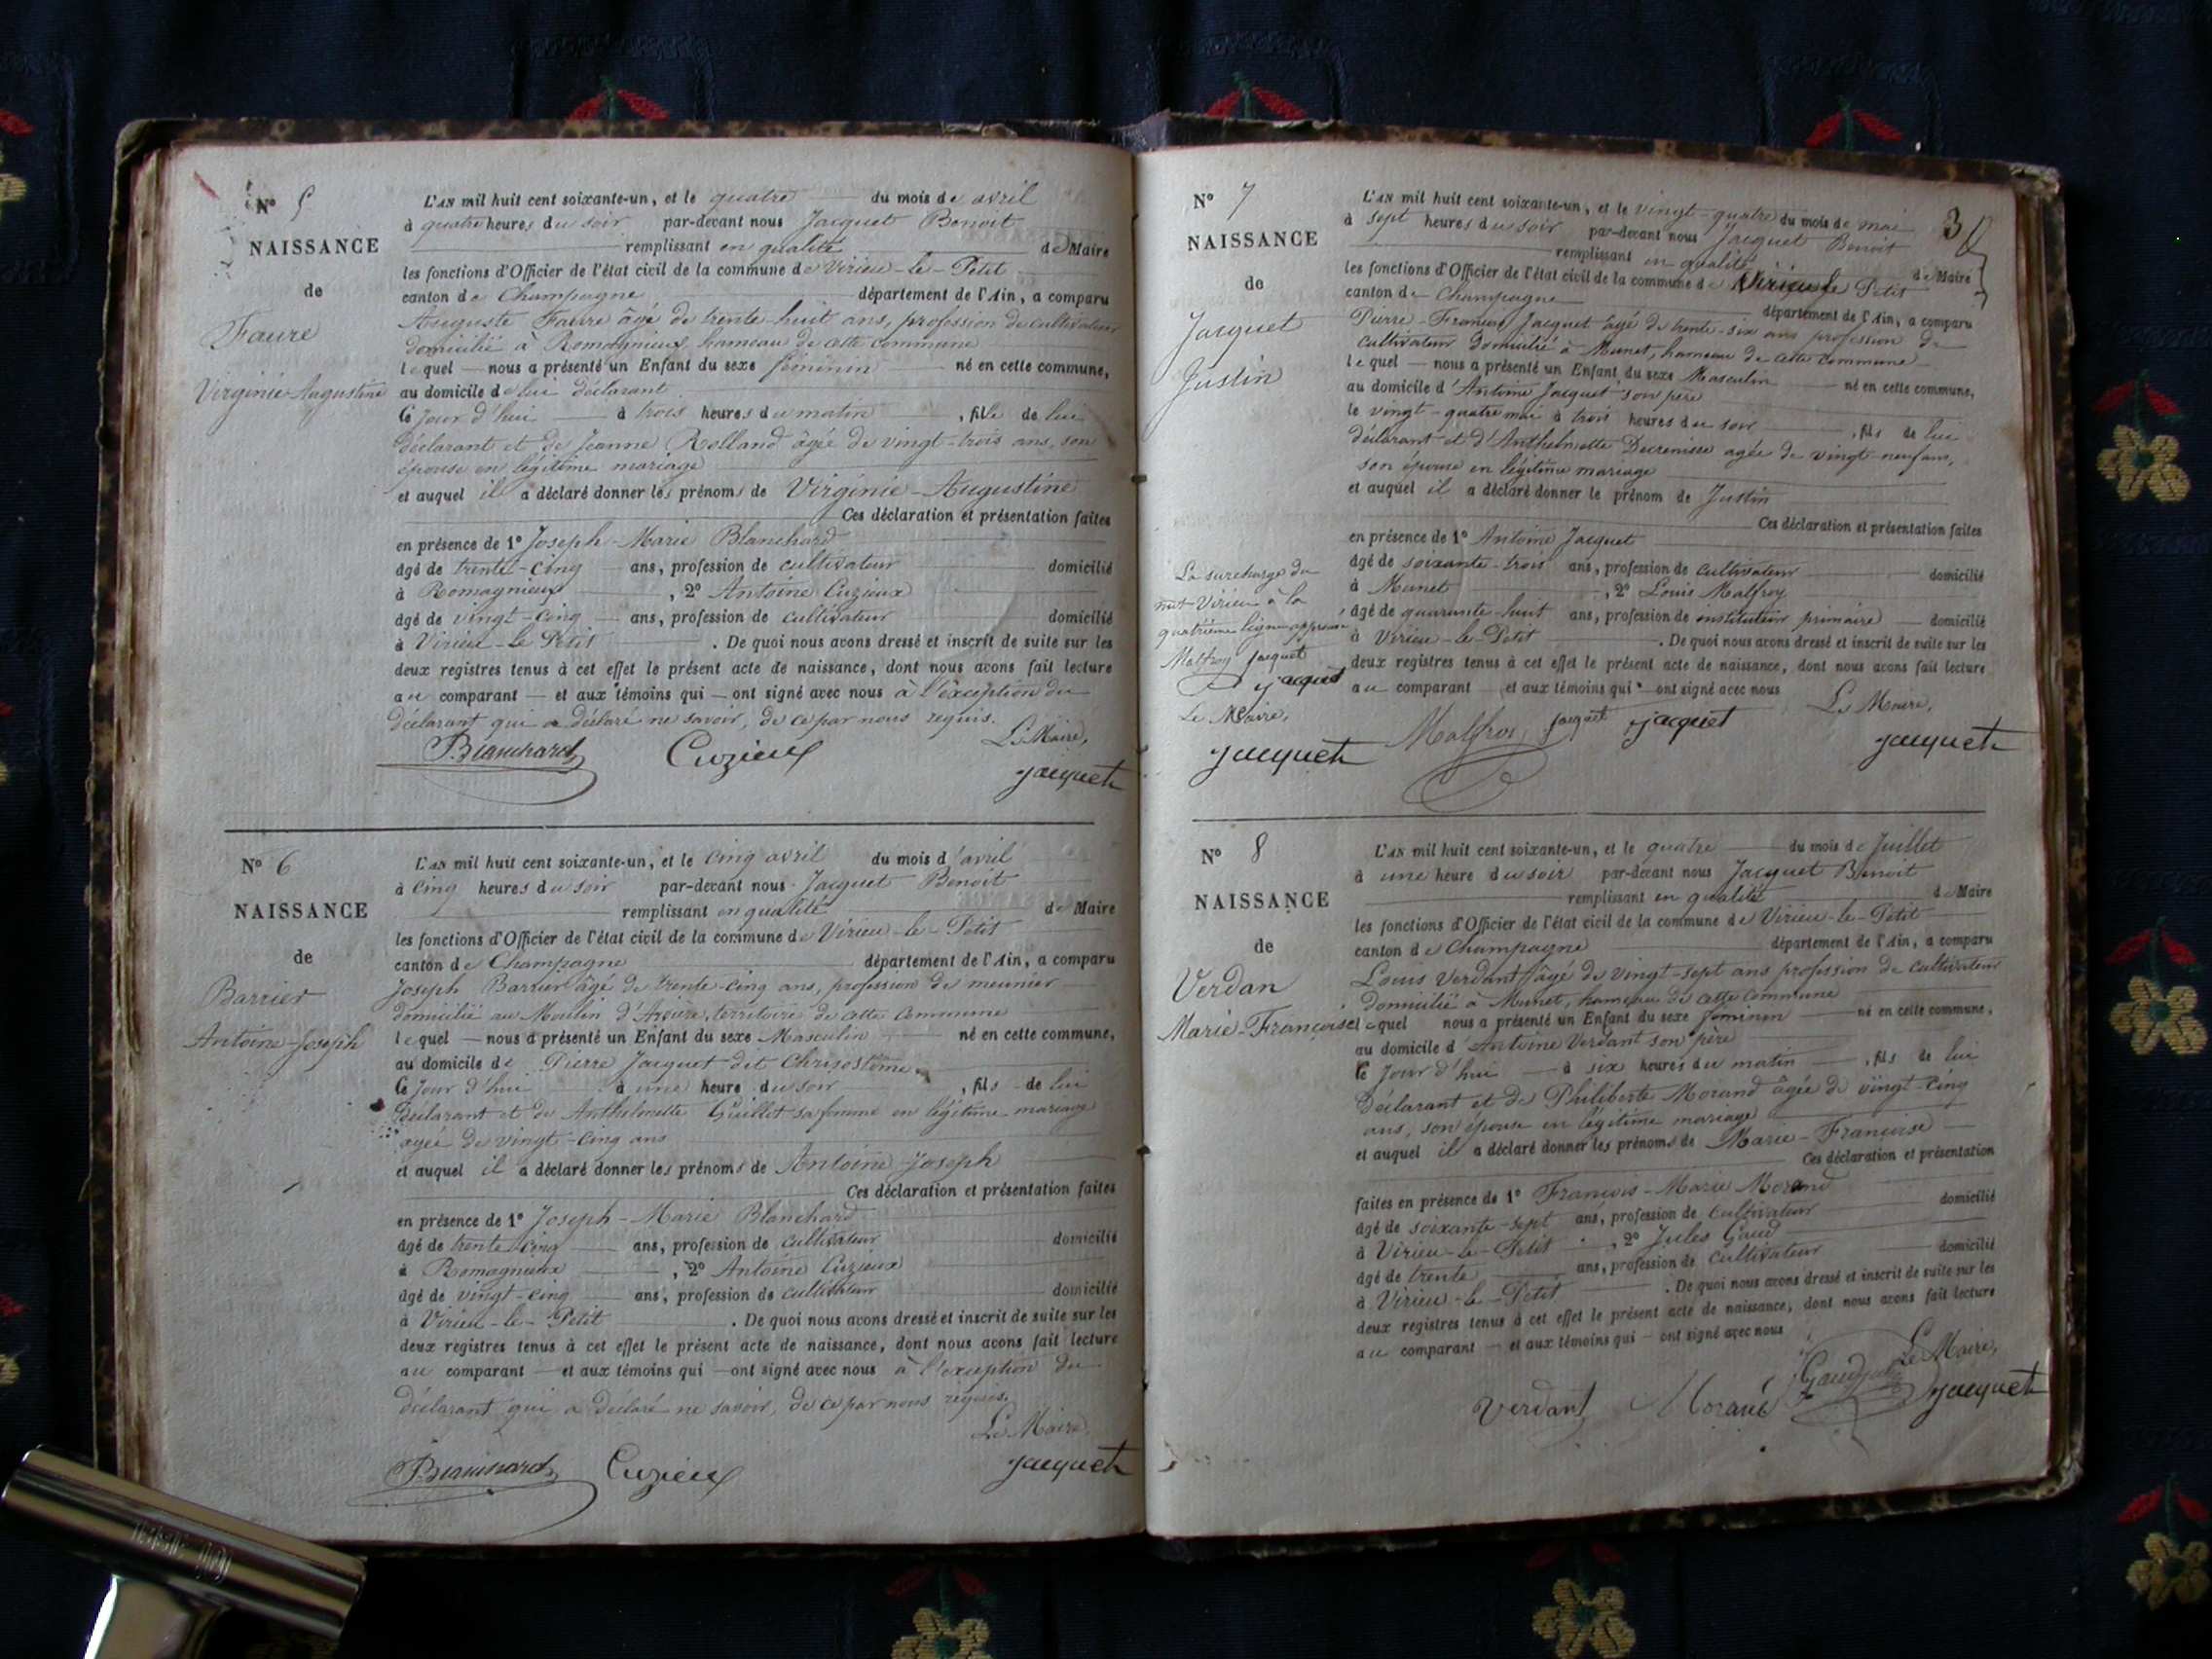 N° 5
NAISSANCE
de
Faure
Virginie-Augustine
L'AN mil huit cent soixante-un, et le quatre du mois de avril
à quatre heures du soir par-devant nous Jacquet Benoit
remplissant en qualité de Maire
les fonctions d'Officier de l'état civil de la commune de Virieu-le-Petit
canton de Champagne département de l'Ain, a comparu
Auguste Faure âgé de trente-huit ans, profession de cultivateur
domicilié à Romagnieux, hameau de cette commune
lequel nous a présenté un Enfant du sexe féminin né en cette commune,
au domicile de lui déclarant
Ce jour d'hui à trois heures du matin, fille de lui
déclarant et de Jeanne Rolland âgée de vingt-trois ans, son
épouse en légitime mariage
et auquel il a déclaré donner les prénoms de Virginie-Augustine
Ces déclaration et présentation faites
en présence de 1° Joseph-Marie Blanchard
âgé de trente-cinq ans, profession de cultivateur domicilié
à Romagnieux, 2° Antoine Cuzieux
âgé de vingt-cinq ans, profession de cultivateur domicilié
à Virieu-le-Petit. De quoi nous avons dressé et inscrit de suite sur les
deux registres tenus à cet effet le présent acte de naissance, dont nous avons fait lecture
au comparant et aux témoins qui ont signé avec nous à l'exception du
déclarant qui a déclaré ne savoir, de ce par nous requis.
Le Maire,
Blanchard Cuzieux Jacquet
N° 6
NAISSANCE
de
Barrier
Antoine-Joseph
L'AN mil huit cent soixante-un, et le cinq avril du mois d'avril
à cinq heures du soir par-devant nous Jacquet Benoit
remplissant en qualité de Maire
les fonctions d'Officier de l'état civil de la commune de Virieu-le-Petit
canton de Champagne département de l'Ain, a comparu
Joseph Barrier âgé de trente-cinq ans, profession de meunier
domicilié au Moulin d'Arvière, territoire de cette commune
lequel nous a présenté un Enfant du sexe Masculin né en cette commune,
au domicile de Pierre Jacquet dit Chrisostôme
Ce jour d'hui à une heure du soir, fils de lui
déclarant et de Anthelmette Guillet sa femme en légitime mariage
agée de vingt-cinq ans
et auquel il a déclaré donner les prénoms de Antoine Joseph
Ces déclaration et présentation faites
en présence de 1° Joseph-Marie Blanchard
âgé de trente cinq ans, profession de cultivateur domicilié
à Romagnieux, 2° Antoine Cuzieux
âgé de vingt-cinq ans, profession de cultivateur domicilié
à Virieu-le-Petit. De quoi nous avons dressé et inscrit de suite sur les
deux registres tenus à cet effet le présent acte de naissance, dont nous avons fait lecture
au comparant et aux témoins qui ont signé avec nous à l'exception du
déclarant qui a déclaré ne savoir, de ce par nous requis.
Le Maire,
Blanchard Cuzieux Jacquet
N° 7
NAISSANCE
de
Jacquet
Justin
La surcharge du
mot Virieu à la
quatrième ligne approuvé
Malfroy Jacquet
Jacquet
Le Maire,
Jacquet
L'AN mil huit cent soixante-un, et le vingt-quatre du mois de mai
à sept heures du soir par-devant nous Jacquet Benoit
remplissant en qualité de Maire
les fonctions d'Officier de l'état civil de la commune de Virieu le Petit
canton de Champagne département de l'Ain, a comparu
Pierre-François Jacquet âgé de trente-six ans profession de
cultivateur domicilié à Munet, hameau de cette commune
lequel nous a présenté un Enfant du sexe Masculin né en cette commune,
au domicile d'Antoine Jacquet son père
le vingt-quatre mai à trois heures du soir, fils de lui
déclarant et d'Anthelmette agée de vingt-neuf ans,
son épouse en légitime mariage
et auquel il a déclaré donner le prénom de Justin
Ces déclaration et présentation faites
en présence de 1° Antoine Jacquet
âgé de soixante-trois ans, profession de cultivateur domicilié
à Munet, 2° Louis Malfroy
âgé de quarante-huit ans, profession de instituteur primaire domicilié
à Virieu-le-Petit. De quoi nous avons dressé et inscrit de suite sur les
deux registres tenus à cet effet le présent acte de naissance, dont nous avons fait lecture
au comparant et aux témoins qui ont signé avec nous
Le Maire,
Malfroy Jacquet Jacquet Jacquet
N° 8
NAISSANCE
de
Verdan
Marie-Françoise
L'AN mil huit cent soixante-un, et le quatre du mois de Juillet
à une heure du soir par-devant nous Jacquet Benoit
remplissant en qualité de Maire
les fonctions d'Officier de l'état civil de la commune de Virieu-le-Petit
canton de Champagne département de l'Ain, a comparu
Louis Verdant âgé de vingt-sept ans profession de cultivateur
domicilié à Munet, hameau de cette commune
lequel nous a présenté un Enfant du sexe féminin né en cette commune,
au domicile d'Antoine Verdant son père
Ce jour d'hui à six heures du matin, fils de lui
déclarant et de Philiberte Morand âgée de vingt-cinq
ans, son épouse en légitime mariage
et auquel il a déclaré donner les prénoms de Marie-Françoise
Ces déclaration et présentation
faites en présence de 1° François-Marie Morand
âgé de soixante-sept ans, profession de cultivateur domicilié
à Virieu-le-Petit, 2° Jules Gaud
âgé de trente ans, profession de cultivateur domicilié
à Virieu-le-Petit. De quoi nous avons dressé et inscrit de suite sur les
deux registres tenus à cet effet le présent acte de naissance, dont nous avons fait lecture
au comparant et aux témoins qui ont signé avec nous
Le Maire,
Verdant Morand Gaud Jacquet